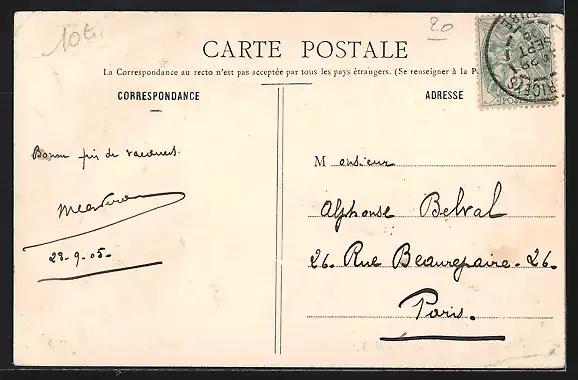 10€
20
CARTE POSTALE
La Correspondance au recto n'est pas acceptée par tous les pays étrangers. (Se renseigner à la P
CORRESPONDANCE
ADRESSE
Bonne fin de vacances.
28-9-05-
Monsieur
Alphonse Belval
26. Rue Beaurepaire. 26.
Paris.
SEPT
POSTES